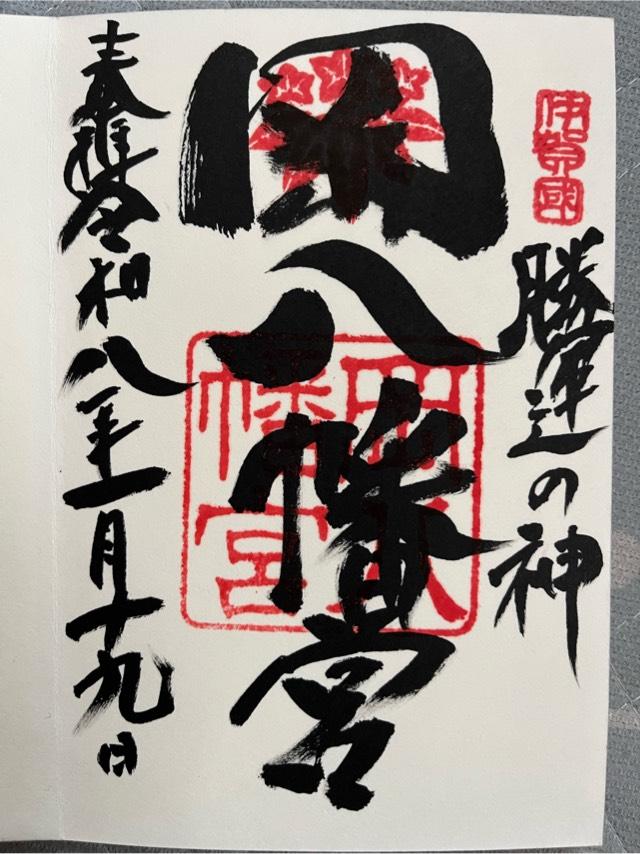 伊賀國
勝運の神
岡八幡宮
岡八
幡宮
奉拝令和八年一月十九日